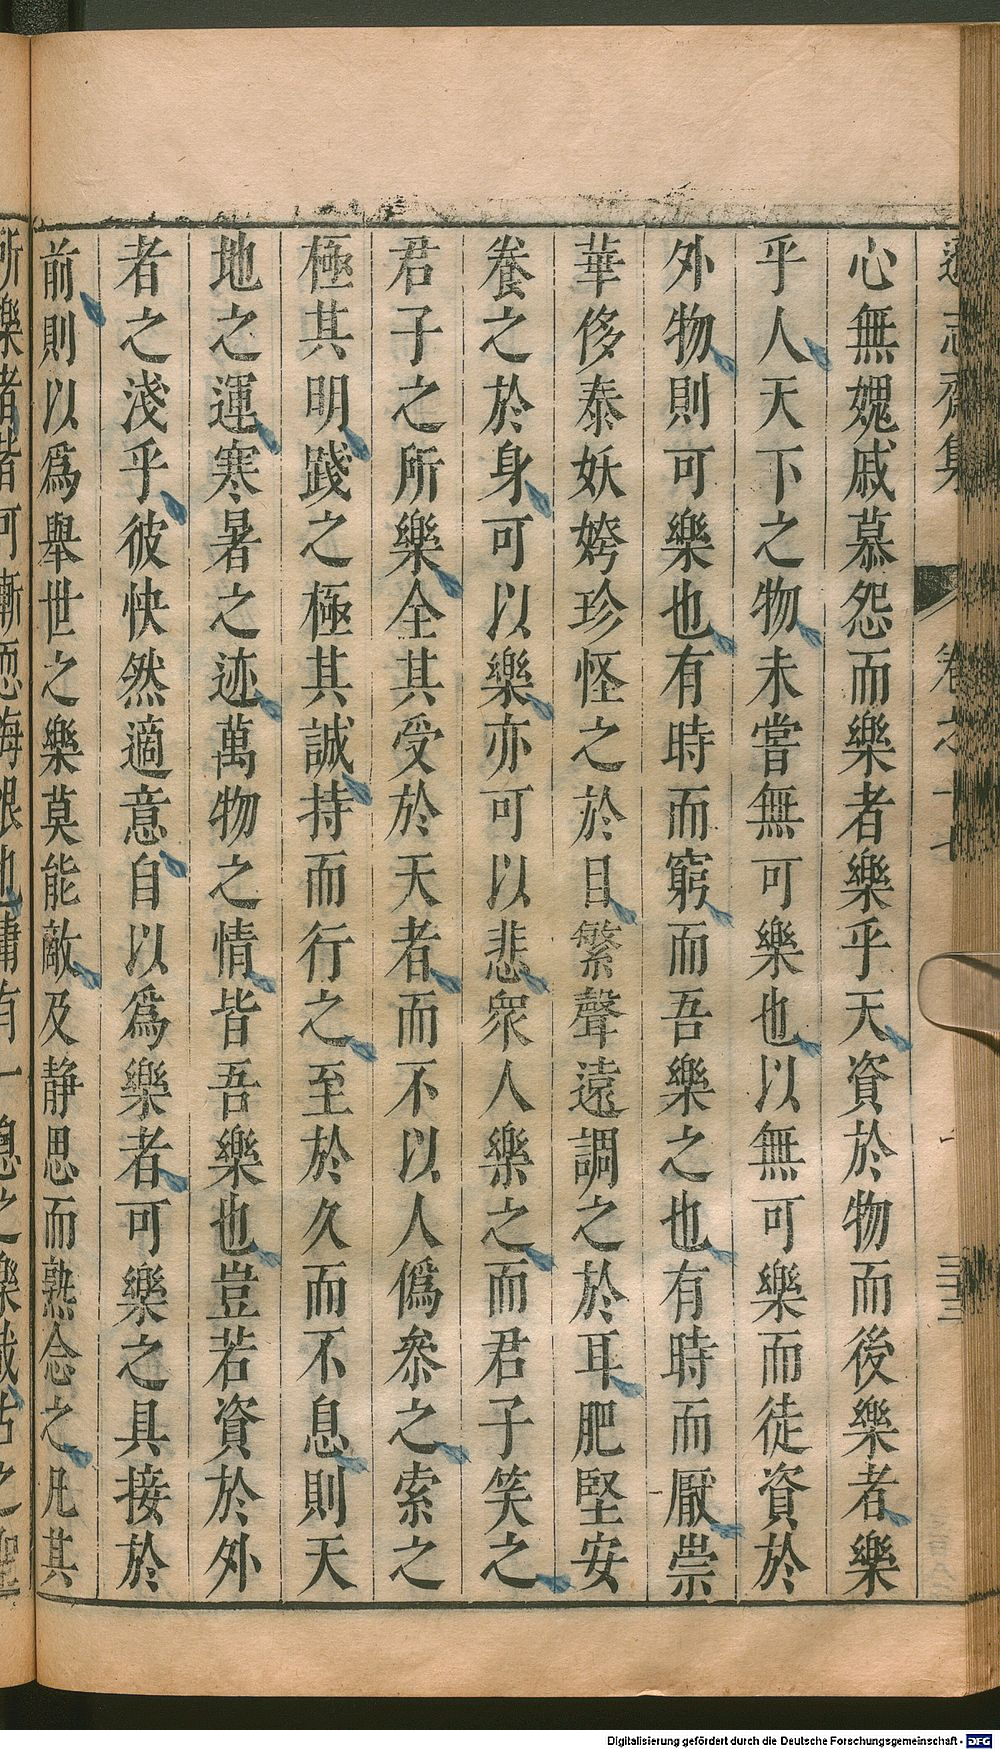 心無媿戚慕怨而樂者樂乎天資於物而後樂者樂
乎人天下之物未嘗無可樂也以無可樂而徒資於
外物則可樂也有時而窮而吾樂之也有時而厭崇
華侈泰妖姱珍怪之於目繁聲遠調之於耳肥堅安
養之於身可以樂亦可以悲衆人樂之而君子笑之
君子之所樂全其受於天者而不以人僞叅之索之
極其明踐之極其誠持而行之至於久而不息則天
地之運寒暑之迹萬物之情皆吾樂也豈若資於外
者之淺乎彼快然適意自以爲樂者可樂之具接於
前則以爲舉世之樂莫能敵及静思而熟念之凡其
所樂者皆可慚恧悔恨也庸有一息之樂哉古之聖
志齋集 卷之十七 三十三
Digitalisierung gefördert durch die Deutsche Forschungsgemeinschaft - DFG